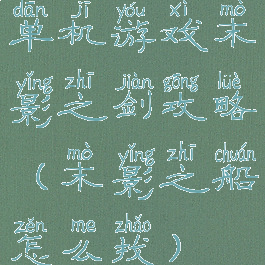 dān jī yóu xì mò
单机游戏末
yǐng zhī jiàn gōng lüè
影之剑攻略
mò yǐng zhī chuán
（末影之船
zěn me zhǎo
怎么找）